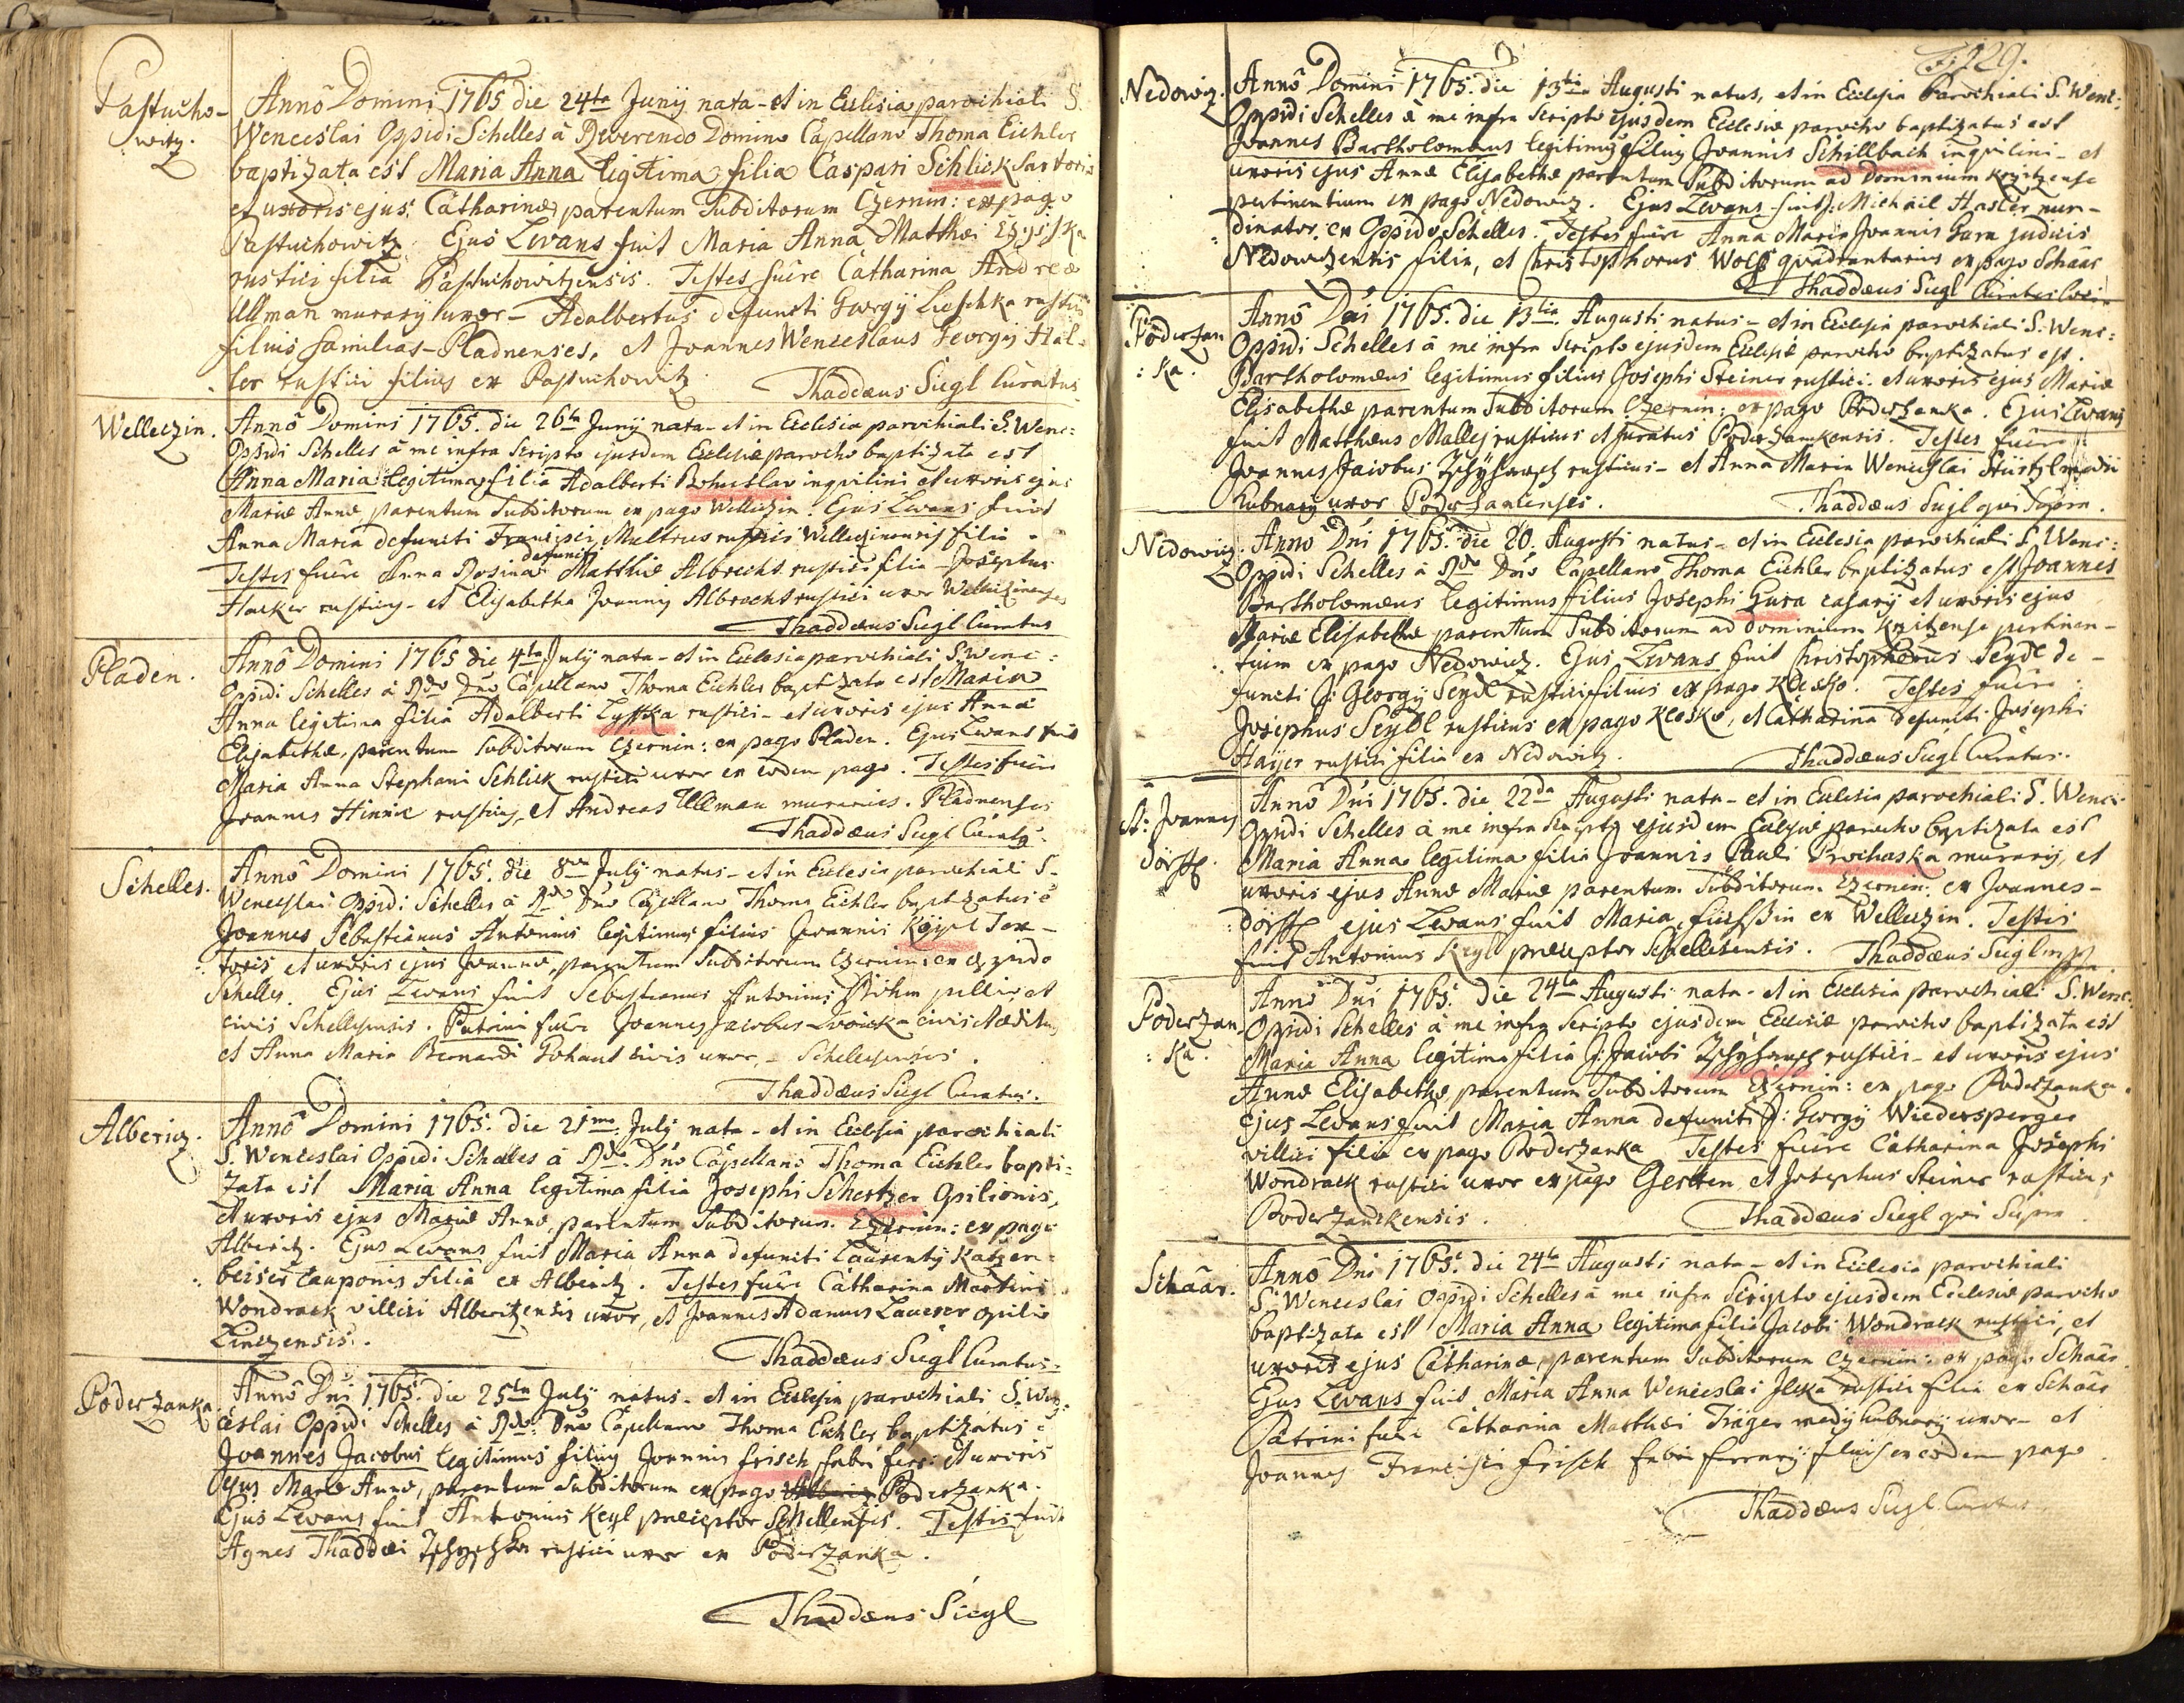 Pastucho-
witz.
Anno Domini 1765 die 24ta Junij nata - et in Ecclesia parochiali S.
Wenceslai Oppidi Schelles à Reverendo Domino Capellano Thoma Eichler
baptizata est Maria Anna legitima filia Caspari Schlick Sartoris
et uxoris ejus Catharinæ parentum Subditorum Czernin: ex pago
Pastuchowitz. Ejus Levans fuit Maria Anna Matthæi
rustici filia Pastuchowitzensis. Testes fuêre Catharina Andreæ
Ullman murarij uxor - Adalbertus defuncti Georgij Lieschka rustici
filius familias - Pladnenses, et Joannes Wenceslaus Georgij Hal-
ler rustici filius ex Pastuchowitz.
Thaddæus Siegl Curatus
Welleczin.
Anno Domini 1765. die 26ta Junij nata - et in Ecclesia parochiali S. Wenc:
Oppidi Schelles à me infra Scripto ejusdem Ecclesiæ parocho baptizata est
Anna Maria legitima filia Adalberti Bohuslav inquilini et uxoris ejus
Mariæ Annæ parentum Subditorum ex pago Welliczin. Ejus Levans fuit
Anna Maria defuncti Francisci rustici filia -
defuncti
Testes fuêre Anna Rosina Matthiæ Albrecht rustici filia - Josephus
Hacker rusticus - et Elisabetha Joannis Albrecht rustici uxor Welliczinenses
Thaddæus Siegl Curatus
Pladen.
Anno Domini 1765 die 4ta July nata - et in Ecclesia parochiali S. Wenc:
Oppidi Schelles à Rdo Dno Capellano Thoma Eichler baptizata est Maria
Anna legitima filia Adalberti Lystka rustici - et uxoris ejus Annæ
Elisabethæ, parentum Subditorum Czernin: ex pago Pladen. Ejus Levans fuit
Maria Anna Stephani Schlick rustici uxor ex eodem pago. Testes fuêre
Joannes rusticus, et Andreas Ullman murarius. Pladnenses
Thaddæus Siegl Curatus.
Schelles.
Anno Domini 1765. die 8va July natus - et in Ecclesia parochiali S.
Wenceslai Oppidi Schelles à Rdo Dno Capellano Thoma Eichler baptizatus e
Joannes Sebastianus Antonius legitimus filius Joannis Köypl Tex-
toris et uxoris ejus Joannæ, parentum Subditorum Czernin: ex Oppido
Schelles. Ejus Levans fuit Sebastianus Antonius Böhm pellio, et
civis Schellesensis. Patrini fuêre Joannes Jacobus civis
et Anna Maria Bernardi Pohaut civis uxor, - Schellesenses.
Thaddæus Siegl Curatus.
Albericz.
Anno Domini 1765. die 21ma July nata - et in Ecclesia parochiali
S. Wenceslai Oppidi Schelles à Rdo. Dno Capellano Thoma Eichler bapti-
zata est Maria Anna legitima filia Josephi Schertzer Opilionis,
et uxoris ejus Mariæ Annæ, parentum Subditorum Czernin: ex pago
Alberitz. Ejus Levans fuit Maria Anna defuncti Laurentij Katzen-
beiser Cauponis filia ex Alberitz. Testes fuêre Catharina Martini
Wondrack villici Alberitzensis uxor, et Joannes Adamus Lauerer opilio
Linczensis.
Thaddæus Siegl Curatus.
Poderzanka
Anno Dni 1765. die 25ta July natus - et in Ecclesia parochiali S. Wen-
ceslai Oppidi Schelles à Rdo: Dno Capellano Thoma Eichler baptizatus e
Joannes Jacobus legitimus filius Joannis Frisch fabri ferr: et uxoris
ejus Mariæ Annæ, parentum Subditorum ex pago Poderzanka.
Ejus Levans fuit Antonius Keyl præceptor Schellensis. Testis fuit
Agnes Thaddæi rustici uxor ex Poderzanka.
Thaddæus Siegl
129.
Nedowiz.
Anno Domini 1765. die 13tia Augusti natus, et in Ecclesia Parochiali S. Wenc:
Oppidi Schelles à me infra Scripto ejusdem Ecclesiæ parocho baptizatus est
Joannes Bartholomæus legitimus filius Joannis Schillbach inquilini - et
uxoris ejus Annæ Elisabethæ parentum Subditorum ad Dominium Kryczense
pertinentium ex pago Nedowiz. Ejus Levans fuit J: Michael Hasler nun-
dinator ex Oppido Schelles. Testes fuêre Anna Maria Joannis Gura judicis
Nedowitzensis filia, et Christophorus Wolf quadrantarius ex pago Schaar
Thaddæus Siegl Curatus
Poderzan
ka.
Anno Dni 1765. die 13tia. Augusti natus - et in Ecclesia parochiali S. Wenc:
Oppidi Schelles à me infra Scripto ejusdem Ecclesiæ parocho baptizatus est.
Bartholomæus legitimus filius Josephi Steiner rustici - et uxoris ejus Mariæ
Elisabethæ parentum Subditorum Czernin: ex pago Poderzanka. Ejus Levans
fuit Matthæus Mallej rusticus et Juratus Poderzankensis. Testes fuêre
Joannes Jacobus rusticus - et Anna Maria Wenceslai
uxor Poderzankenses.
Thaddæus Siegl qui Supra.
Nedowiz.
Anno Dni 1765. die 20. Augusti natus - et in Ecclesia parochiali S. Wenc:
Oppidi Schelles à Rdo Dno Capellano Thoma Eichler baptizatus est Joannes
Bartholomæus legitimus filius Josephi Gura casarij et uxoris ejus
Mariæ Elisabethæ parentum Subditorum ad dominium Kryczense pertinen-
tium ex pago Nedowicz. Ejus Levans fuit Christophorus Seydl de-
functi J: Georgij Seydl rustici filius ex pago Klesko. Testes fuêre:
Josephus Seydl rusticus ex pago Klesko, et Catharina defuncti Josephi
Hayer rustici filia ex Nedowitz.
Thaddæus Siegl Curatus.
St: Joannes
dorff.
Anno Dni 1765. die 22da Augusti nata - et in Ecclesia parochiali S. Wenc:
Oppidi Schelles à me infra Scripto ejusdem Ecclesiæ parocho baptizata est
Maria Anna legitima filia Joannis Pauli Prochaska murarij, et
uxoris ejus Annæ Mariæ parentum Subditorum Czernin: ex Joannes-
dorff ejus Levans fuit Maria ex Welliczin. Testis
fuit Antonius Keyl præceptor Schellesensis.
Thaddæus Siegl mpp
Poderzan
ka.
Anno Dni 1765. die 24ta Augusti nata - et in Ecclesia parochiali S. Wenc:
Oppidi Schelles à me infra Scripto ejusdem Ecclesiæ parocho baptizata est
Maria Anna legitima filia J: Jacobi rustici - et uxoris ejus
Annæ Elisabethæ parentum Subditorum Czernin: ex pago Poderzanka.
Ejus Levans fuit Maria Anna defuncti J: Georgij Wiedersperger
villici filia ex pago Poderzanka Testes fuêre Catharina Josephi
Wondrack rustici uxor ex pago Gersten et Josephus Steiner rusticus
Poderzankensis.
Thaddæus Siegl qui Supra
Schäar.
Anno Dni 1765. die 24ta Augusti nata - et in Ecclesia parochiali
S. Wenceslai Oppidi Schelles à me infra Scripto ejusdem Ecclesiæ parocho
baptizata est Maria Anna legitima filia Jacobi Wondrack rustici, et
uxoris ejus Catharinæ, parentum Subditorum Czernin: ex pago Schaar.
Ejus Levans fuit Maria Anna Wenceslai rustici filia ex Schaar
Patrini fuêre Catharina Matthæi Träger uxor - et
Joannes Francisci Frisch fabri ferrarij filius ex eodem pago
Thaddæus Siegl Curatus